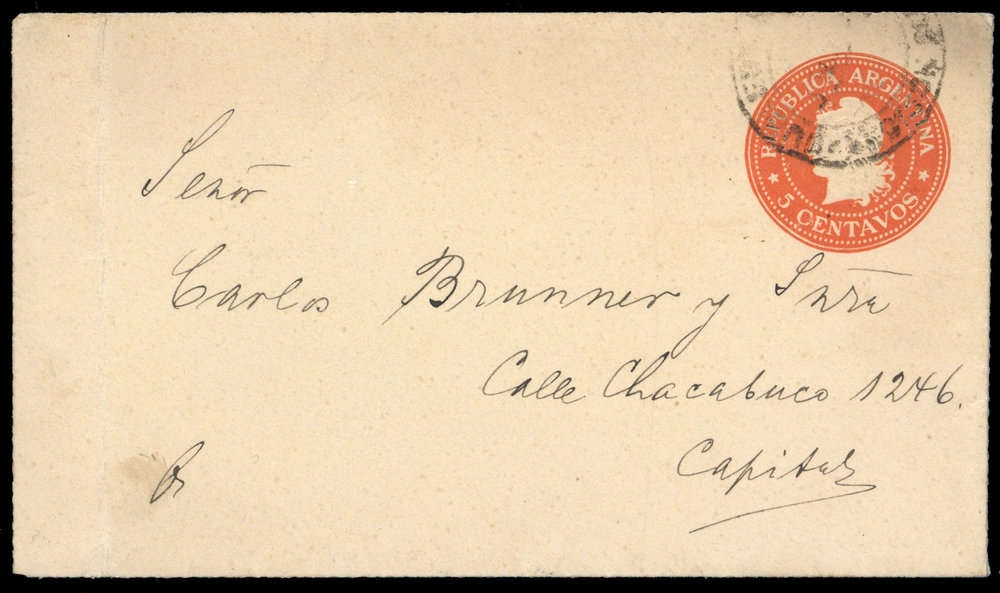 REPÚBLICA ARGENTINA
5 CENTAVOS
Señor
Carlos Brunner y Sñra
Calle Chacabuco 1246.
Capital